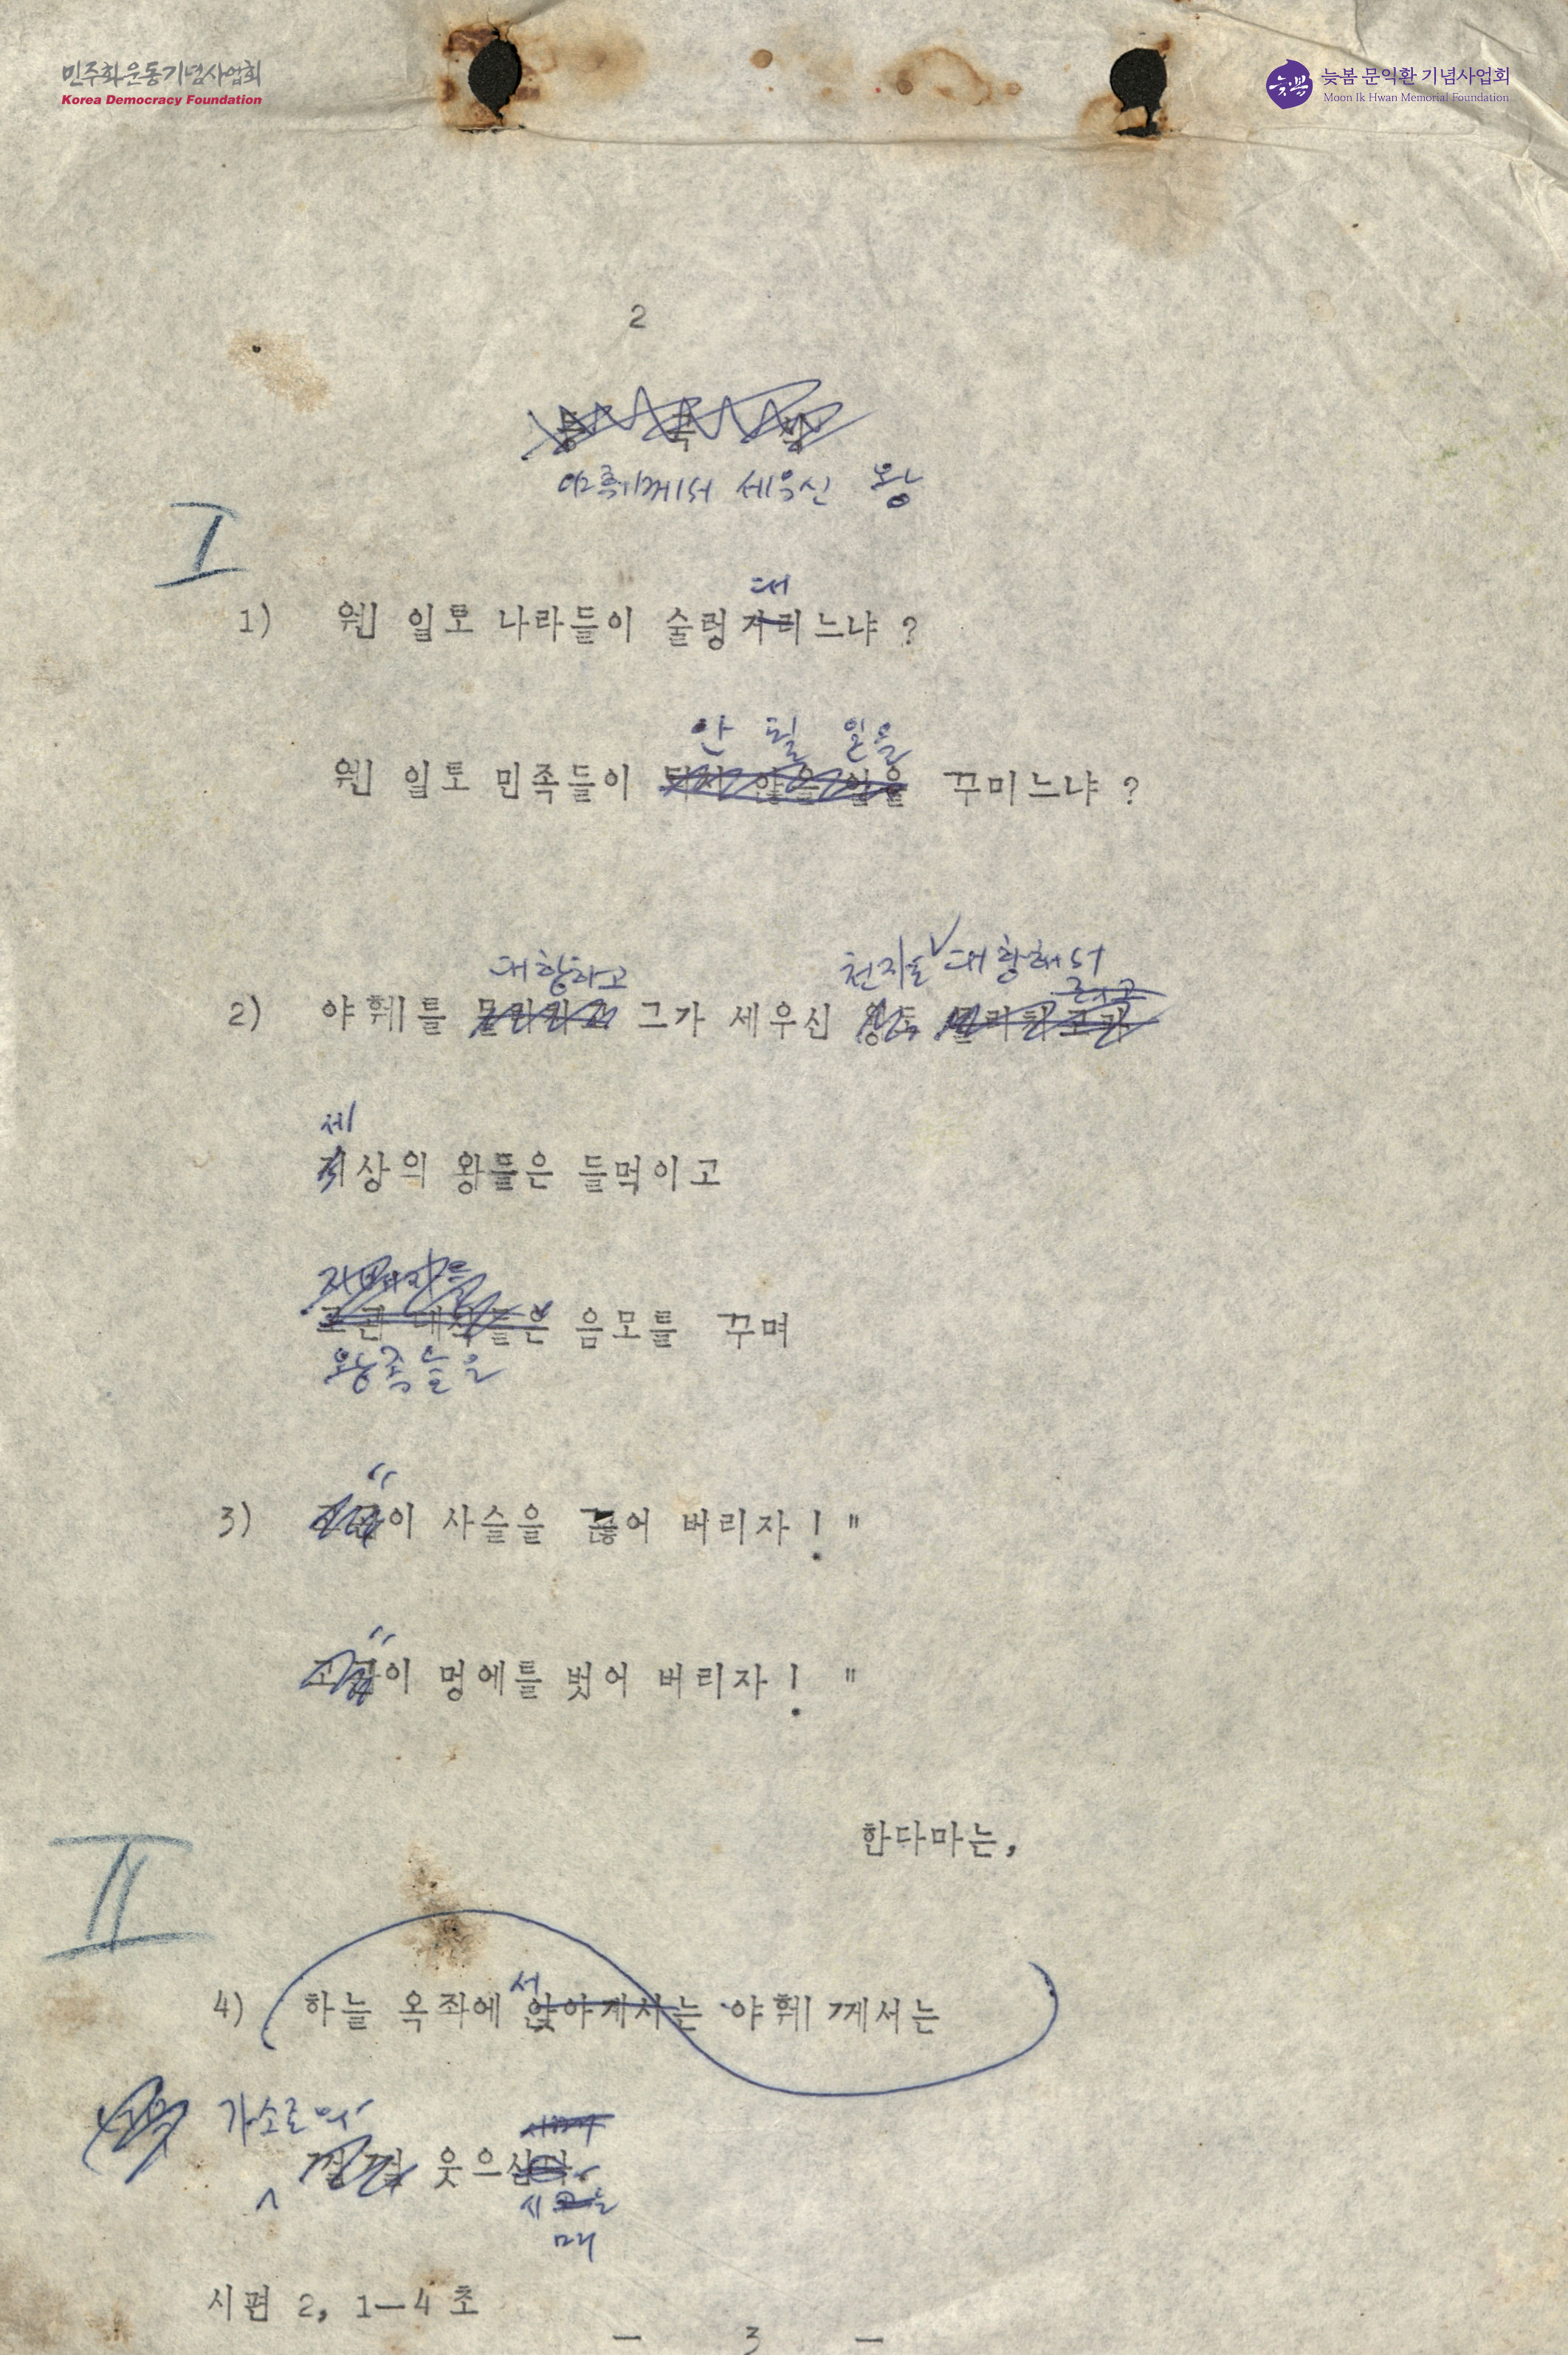 민주화운동기념사업회
Korea Democracy Foundation
늦봄 문익환 기념사업회
Moon Ik Hwan Memorial Foundation
늦봄
2
야훼께서 세우신 왕
I
대
1) 웬 일로 나라들이 술렁거리느냐 ?
안 될 일을
웬 일로 민족들이 되지 않을 일을 꾸미느냐 ?
대항하고 천지를 대항해서
2) 야훼를 물리치고 그가 세우신 왕도
세
지상의 왕들은 들먹이고
고관 대작들은 음모를 꾸며
왕족들은
"
3) 이 사슬을 끊어 버리자 ! "
"
이 멍에를 벗어 버리자 ! "
한다마는,
II
서
4) 하늘 옥좌에 앉아계시는 야훼 께서는
가소로와
껄껄 웃으십니다.
시
매
시편 2, 1—4 초
— 3 —